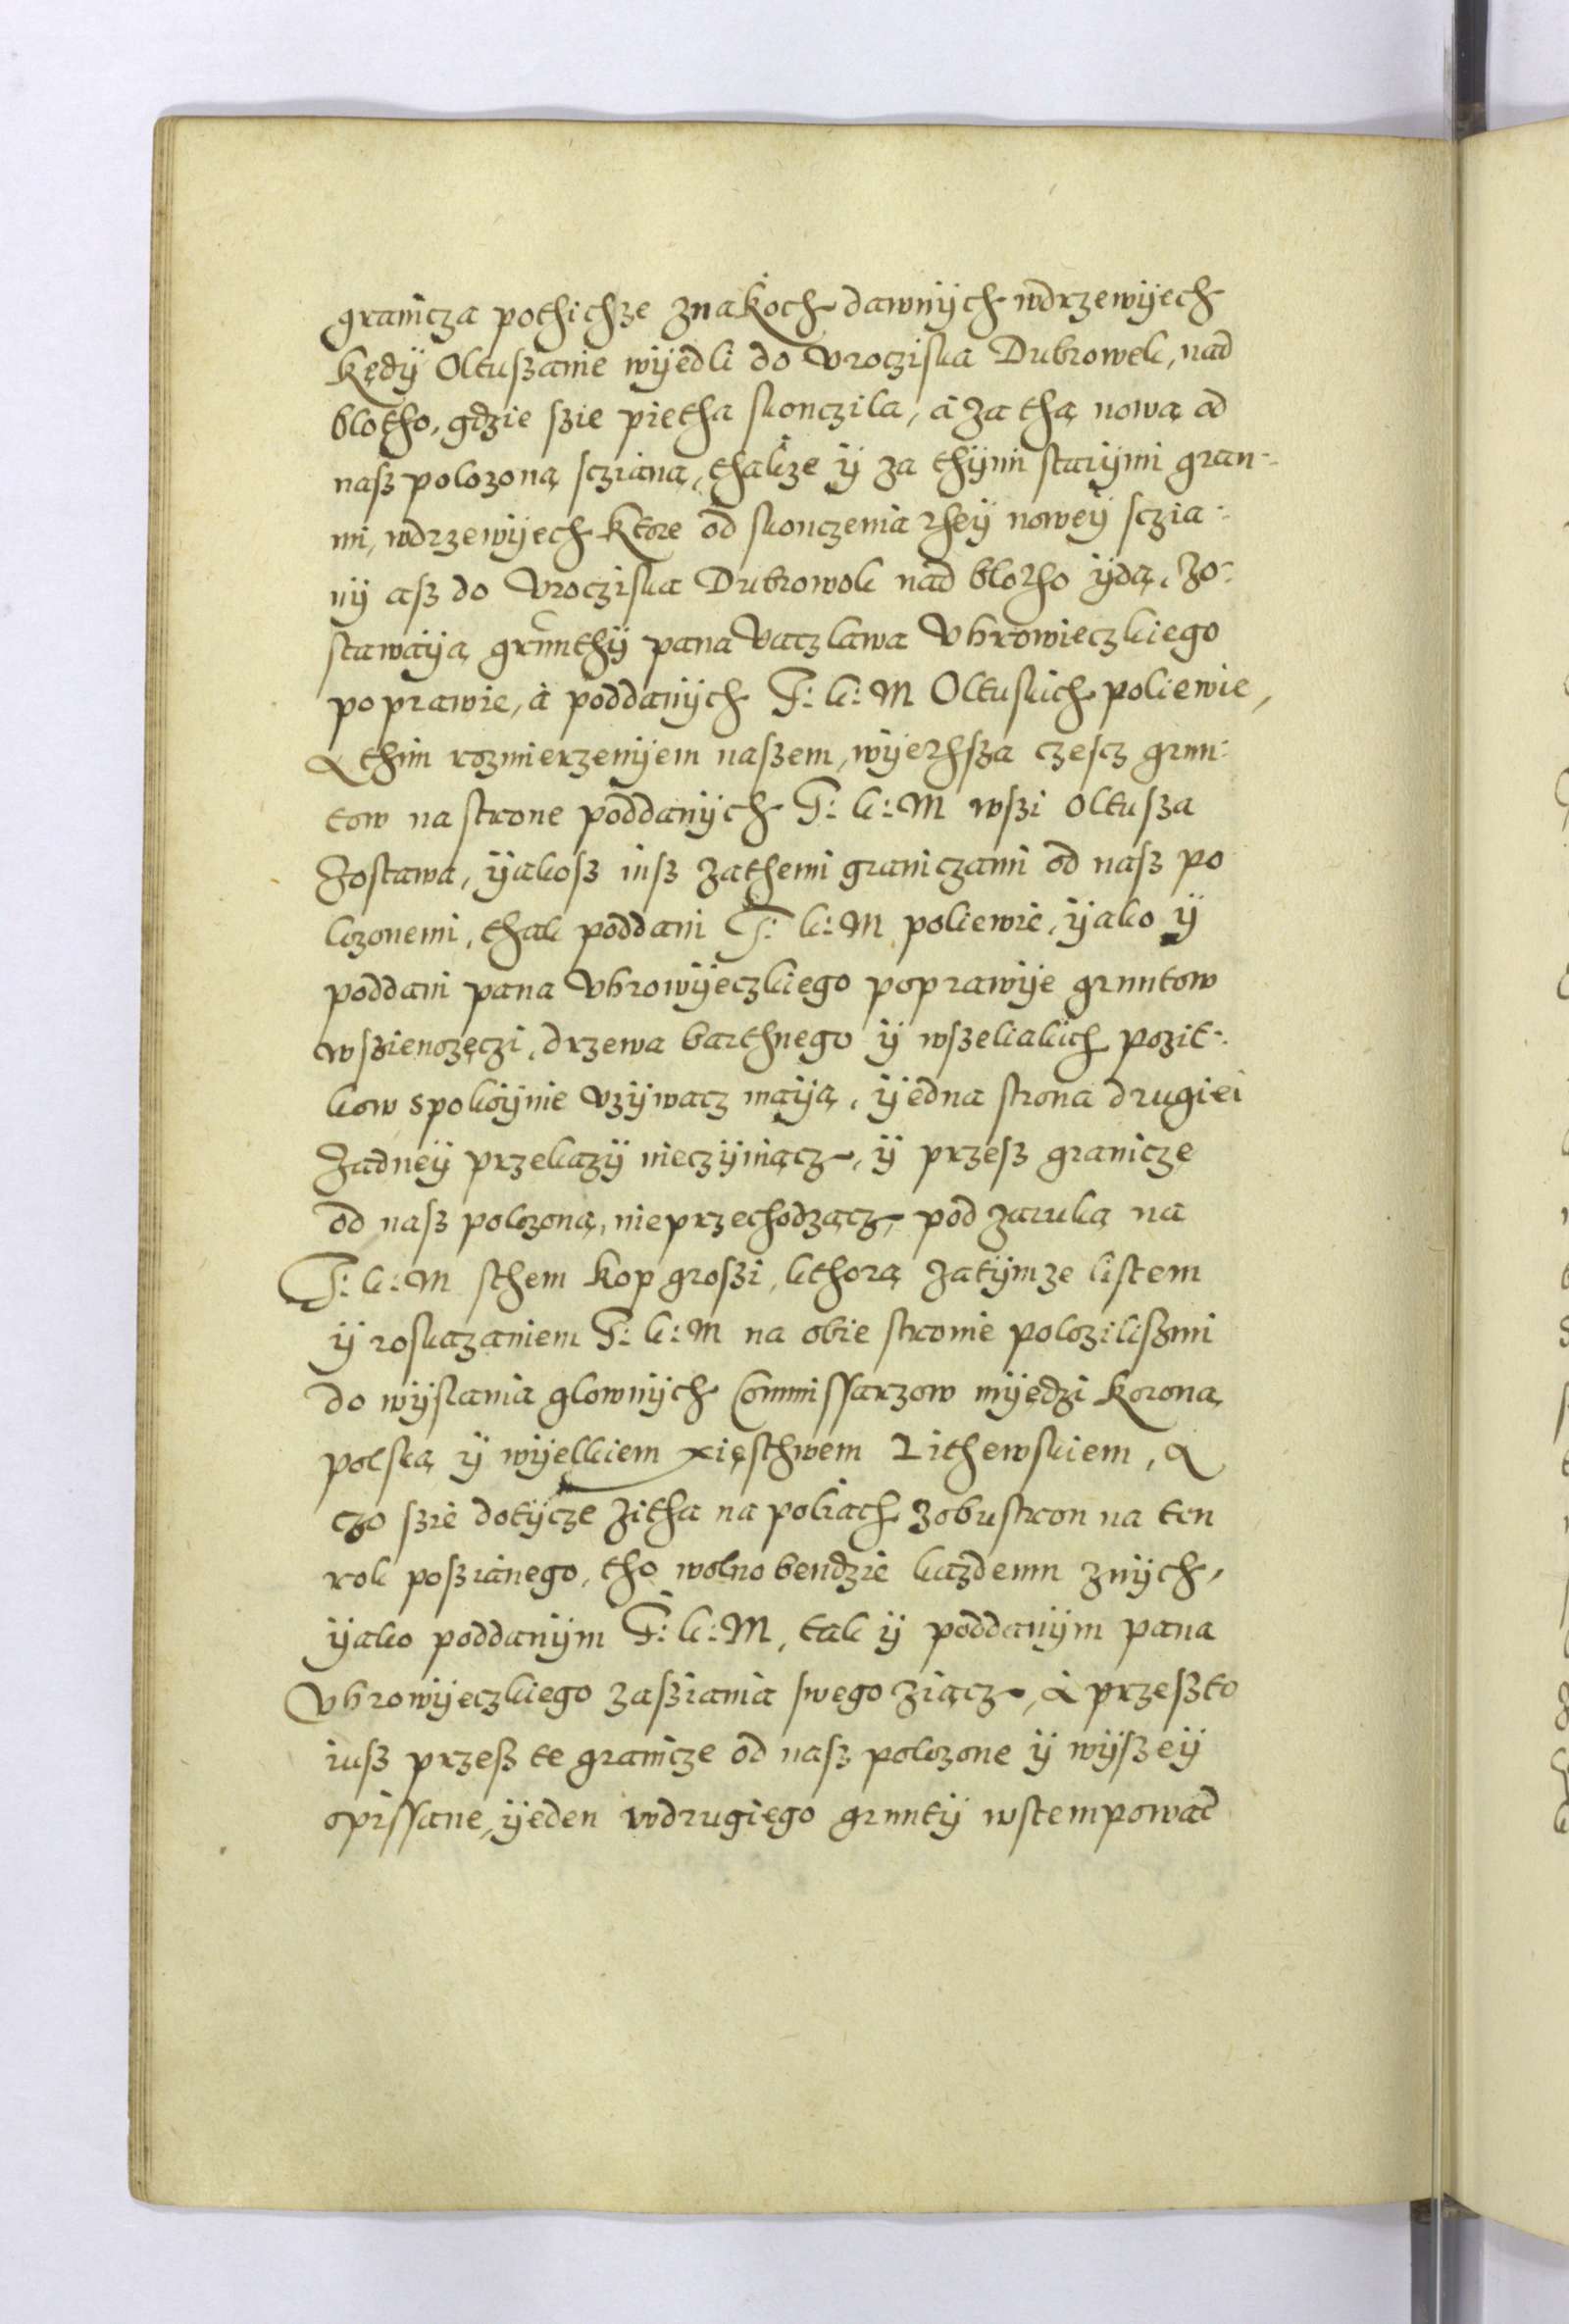 granicza pothichże znakoch dawnÿch wdrzewÿech
kędÿ Oltuszanie wÿedli do Vrocziska Dubrowek, nad
blotho, gdzie szie pietha skonczila, a za thą nową od
nasz polozoną scziáną, thakże ÿ za thÿmi starÿmi gran-
mi, wdrzewÿech ktore od skonczenia theÿ noweÿ sczia-
nÿ asz do Vrocziska Dubrowok nad blotho ÿdą, zo-
stawaÿą grunthÿ pana Vaczlawa Vhrowieczkiego
po prawie, á poddanÿch J: K: M Oltuskich poliewie,
A thim rozmierzenÿem naszem, wÿethsza czescz grun-
tow na strone poddanÿch J: K: M wszi Oltusza
Zostawa, ÿakosz iusz zathemi graniczami od nasz po
lozonemi, thak poddani J: K: M poliewie, ÿako ÿ
poddani pana Vhrowÿeczkiego poprawÿe gruntow
wszienozęczi, drzewa barthnego ÿ wszeliakich pozit-
kow spokoÿnie vzÿwacz maÿą, ÿedna strona drugiei
Zadneÿ przekazÿ nieczÿniącz, ÿ przesz granicze
od nasz polozoną, nieprzechodzącz, pod zaruką na
J: K: M sthem kop groszi, kthorą zatÿmze listem
ÿ roskazaniem J: K: M na obie stronie poloziliszmi
do wÿslania glownÿch Commissarzow mÿędzi Koroną
polską ÿ wÿelkiem xięsthwem Lithewskiem, A
czo szie dotÿcze zitha na poliach zobustron na ten
rok poszianego, tho wolno bendzie kazdemu znÿch,
ÿako poddanÿm J: K: M, tak ÿ poddanÿm pana
Vhrowÿeczkiego zasziania swego ziącz, A przeszto
iusz przesz te granicze od nasz polozone ÿ wÿszeÿ
opissane, ÿeden wdrugiego gruntÿ wstempowac